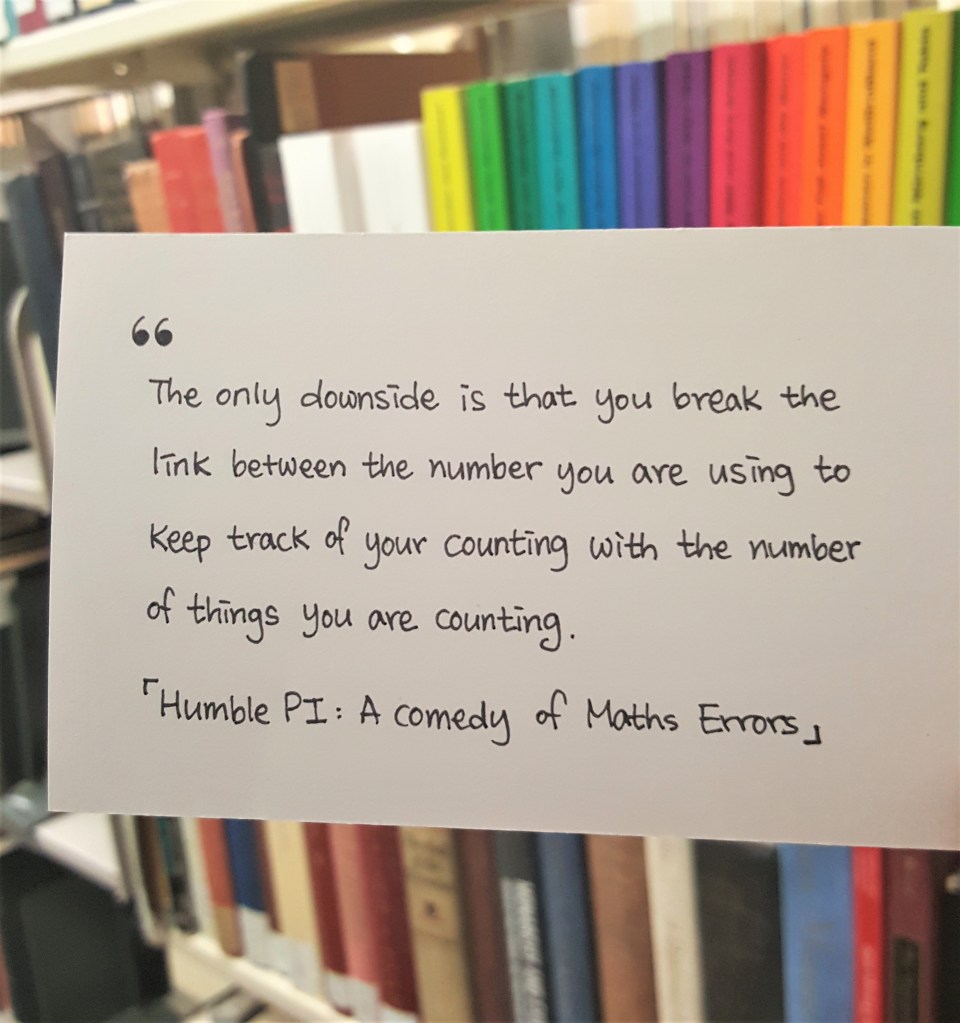 “
The only downside is that you break the
link between the number you are using to
keep track of your counting with the number
of things you are counting.
「Humble PI: A comedy of Maths Errors」